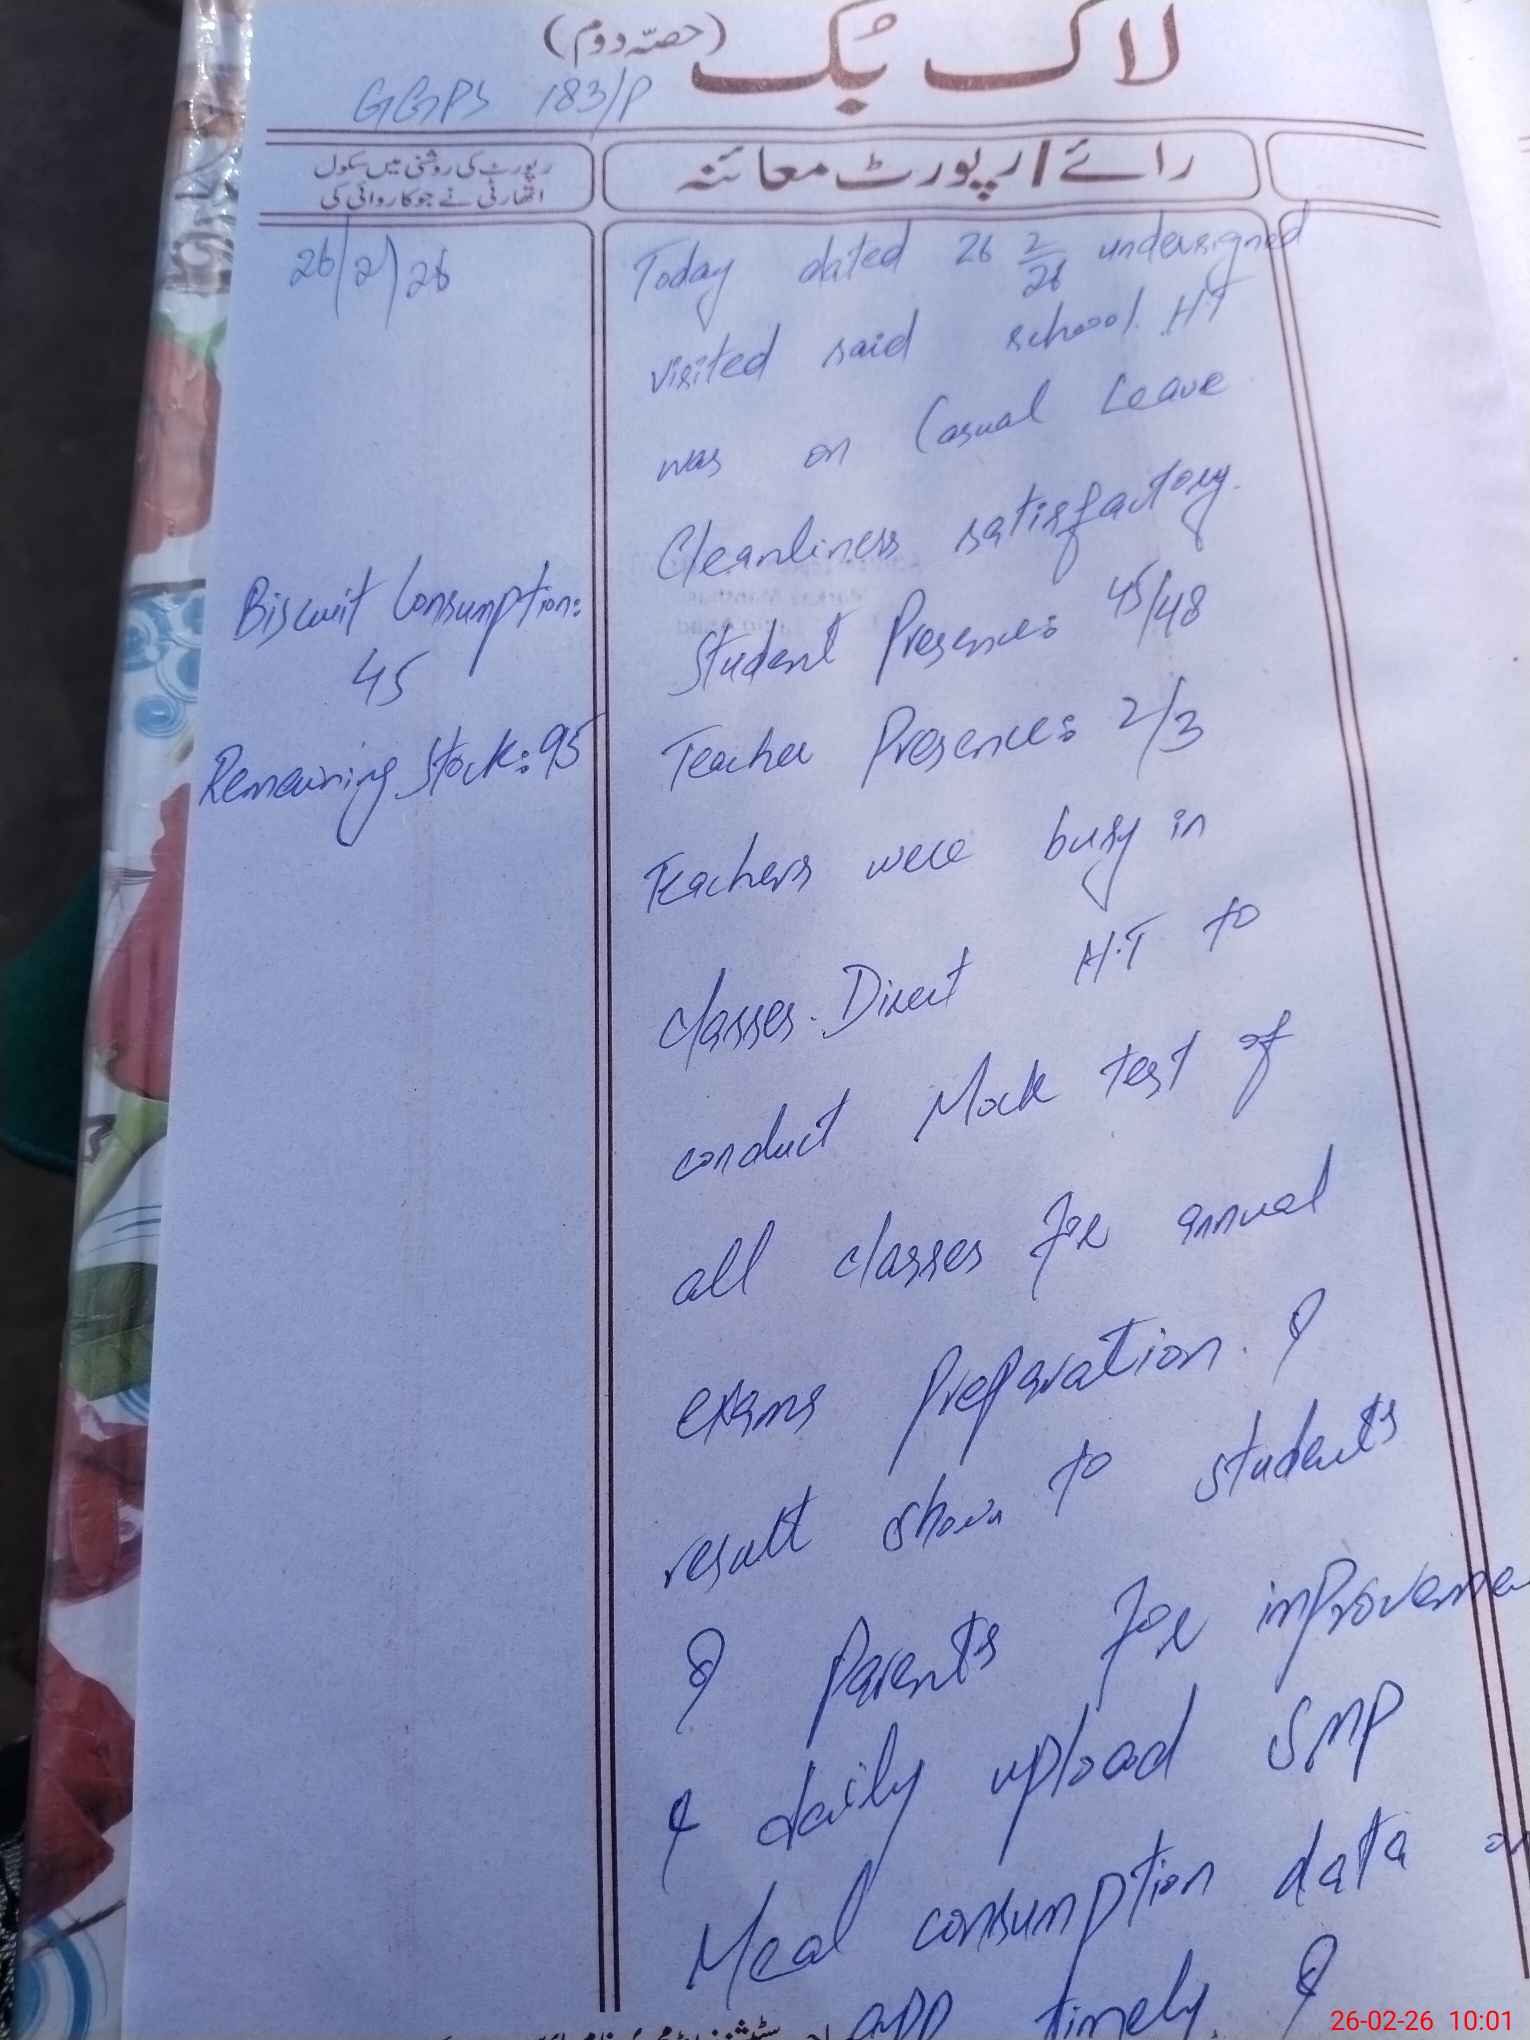 لاگ بُک (حصّہ دوم)
GGPS 183/P
رائے/رپورٹ معائنہ
رپورٹ کی روشنی میں سکول
اتھارٹی نے جو کاروائی کی
26/2/26
Biscuit Consumption:
45
Remaining Stock: 95
Today dated 26 2/26 undersigned
visited said school. HT
was on Casual Leave
Cleanliness satisfactory.
Student Presence: 45/48
Teacher Presence: 2/3
Teachers were busy in
classes. Direct H.T to
conduct Mock test of
all classes for annual
exams preparation. &
result shown to students
& parents for improveme
& daily upload SMP
Meal consumption data
app timely. &
26-02-26 10:01